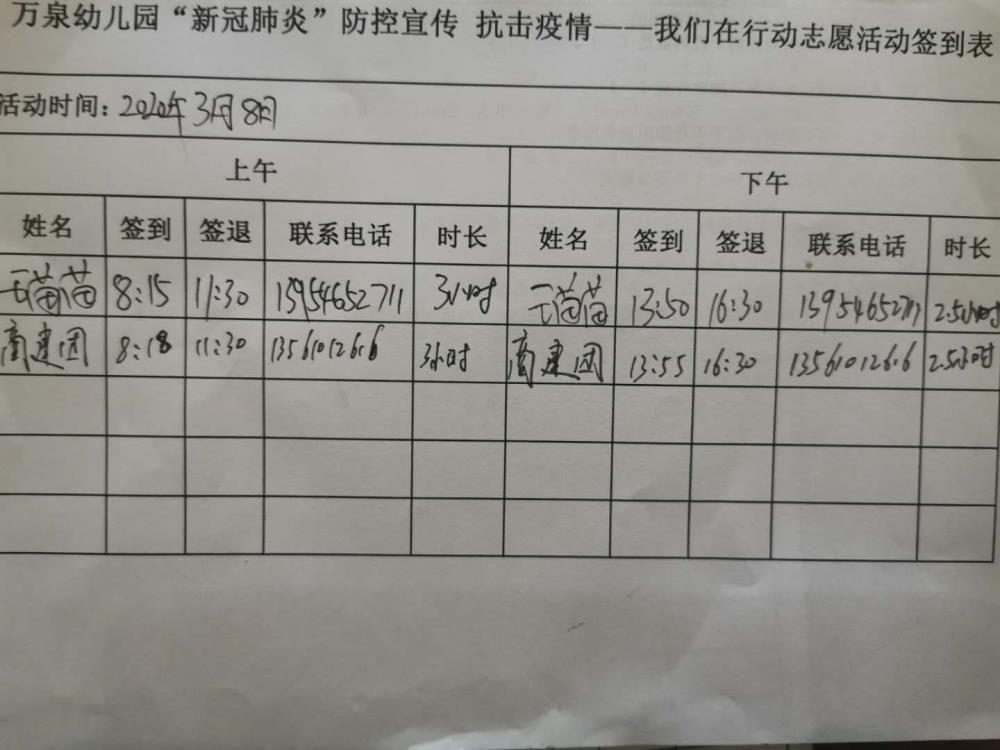 万泉幼儿园“新冠肺炎”防控宣传 抗击疫情——我们在行动志愿活动签到表
活动时间：2020年3月8日
上午 下午
姓名 签到 签退 联系电话 时长 姓名 签到 签退 联系电话 时长
王苗苗 8:15 11:30 13954652711 3小时 王苗苗 13:50 16:30 13954652711 2.5小时
高建团 8:18 11:30 13561012616 3小时 高建团 13:55 16:30 13561012616 2.5小时